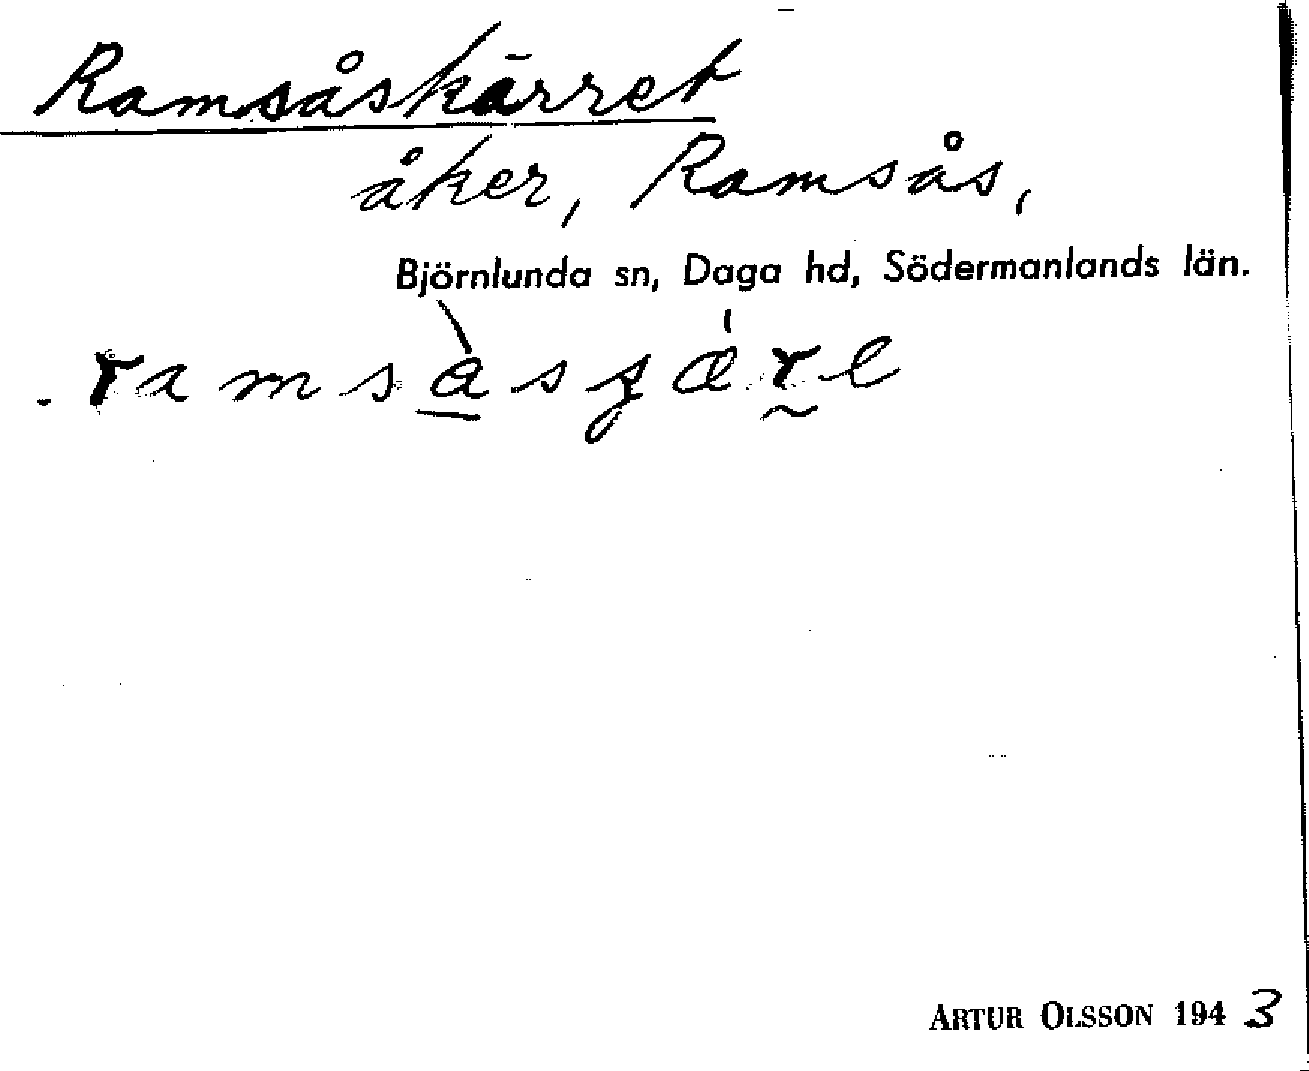 Ramsåskärret
åker, Ramsås,
Björnlunda sn, Daga hd, Södermanlands län.
ARTUR OLSSON 1943